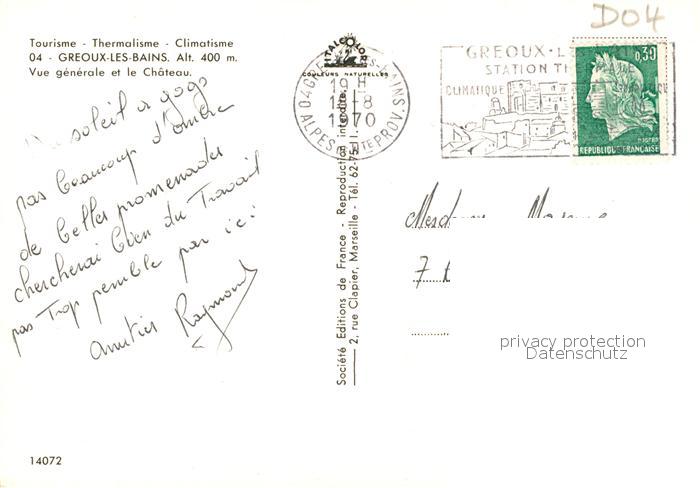 D04
Tourisme - Thermalisme - Climatisme
04 - GREOUX-LES-BAINS. Alt. 400 m.
Vue générale et le Château.
soleil a gogo
pas beaucoup d'ombre
de belles promenades
chercherai bien du Travail
pas Trop penible par ici
amitiés Raymond
ITALCOLOR
COULEURS NATURELLES
04 GRE -BAINS.
19 H
-8
1970
ALPES DE HTE PROV.
GREOUX-L
STATION TH
CLIMATIQUE
0,30
REPUBLIQUE FRANÇAISE
Société Editions de France - Reproduction interdite.
2, rue Clapier, Marseille - Tél. 62-75-
7
privacy protection
Datenschutz
14072